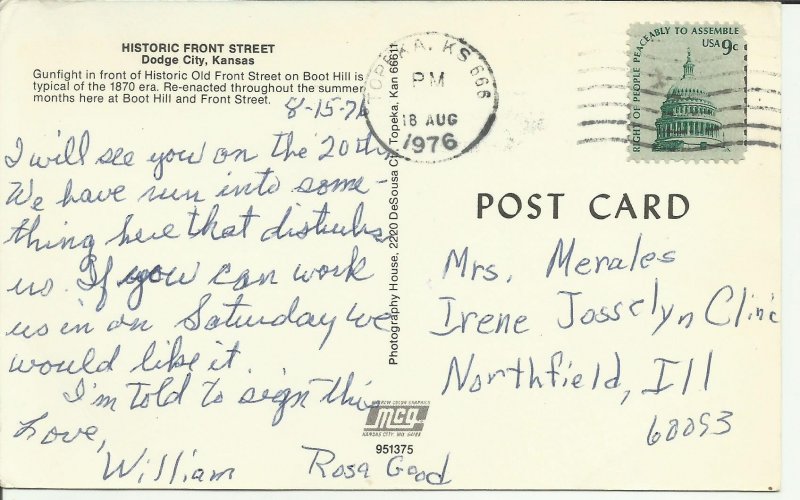 HISTORIC FRONT STREET
Dodge City, Kansas
Gunfight in front of Historic Old Front Street on Boot Hill is
typical of the 1870 era. Re-enacted throughout the summer
months here at Boot Hill and Front Street.
8-15-76
I will see you on the 20th.
We have run into some-
thing here that disturbs
us. If you can work
us in on Saturday we
would like it.
I'm told to sign this
Love,
William Rosa Good
Photography House, 2220 DeSousa Ct., Topeka, Kan 66611
TOPEKA, KS 666
PM
18 AUG
1976
RIGHT OF PEOPLE PEACEABLY TO ASSEMBLE
USA 9c
POST CARD
Mrs. Merales
Irene Josselyn Clinic
Northfield, Ill
60093
mcg
KANSAS CITY, MO.
951375